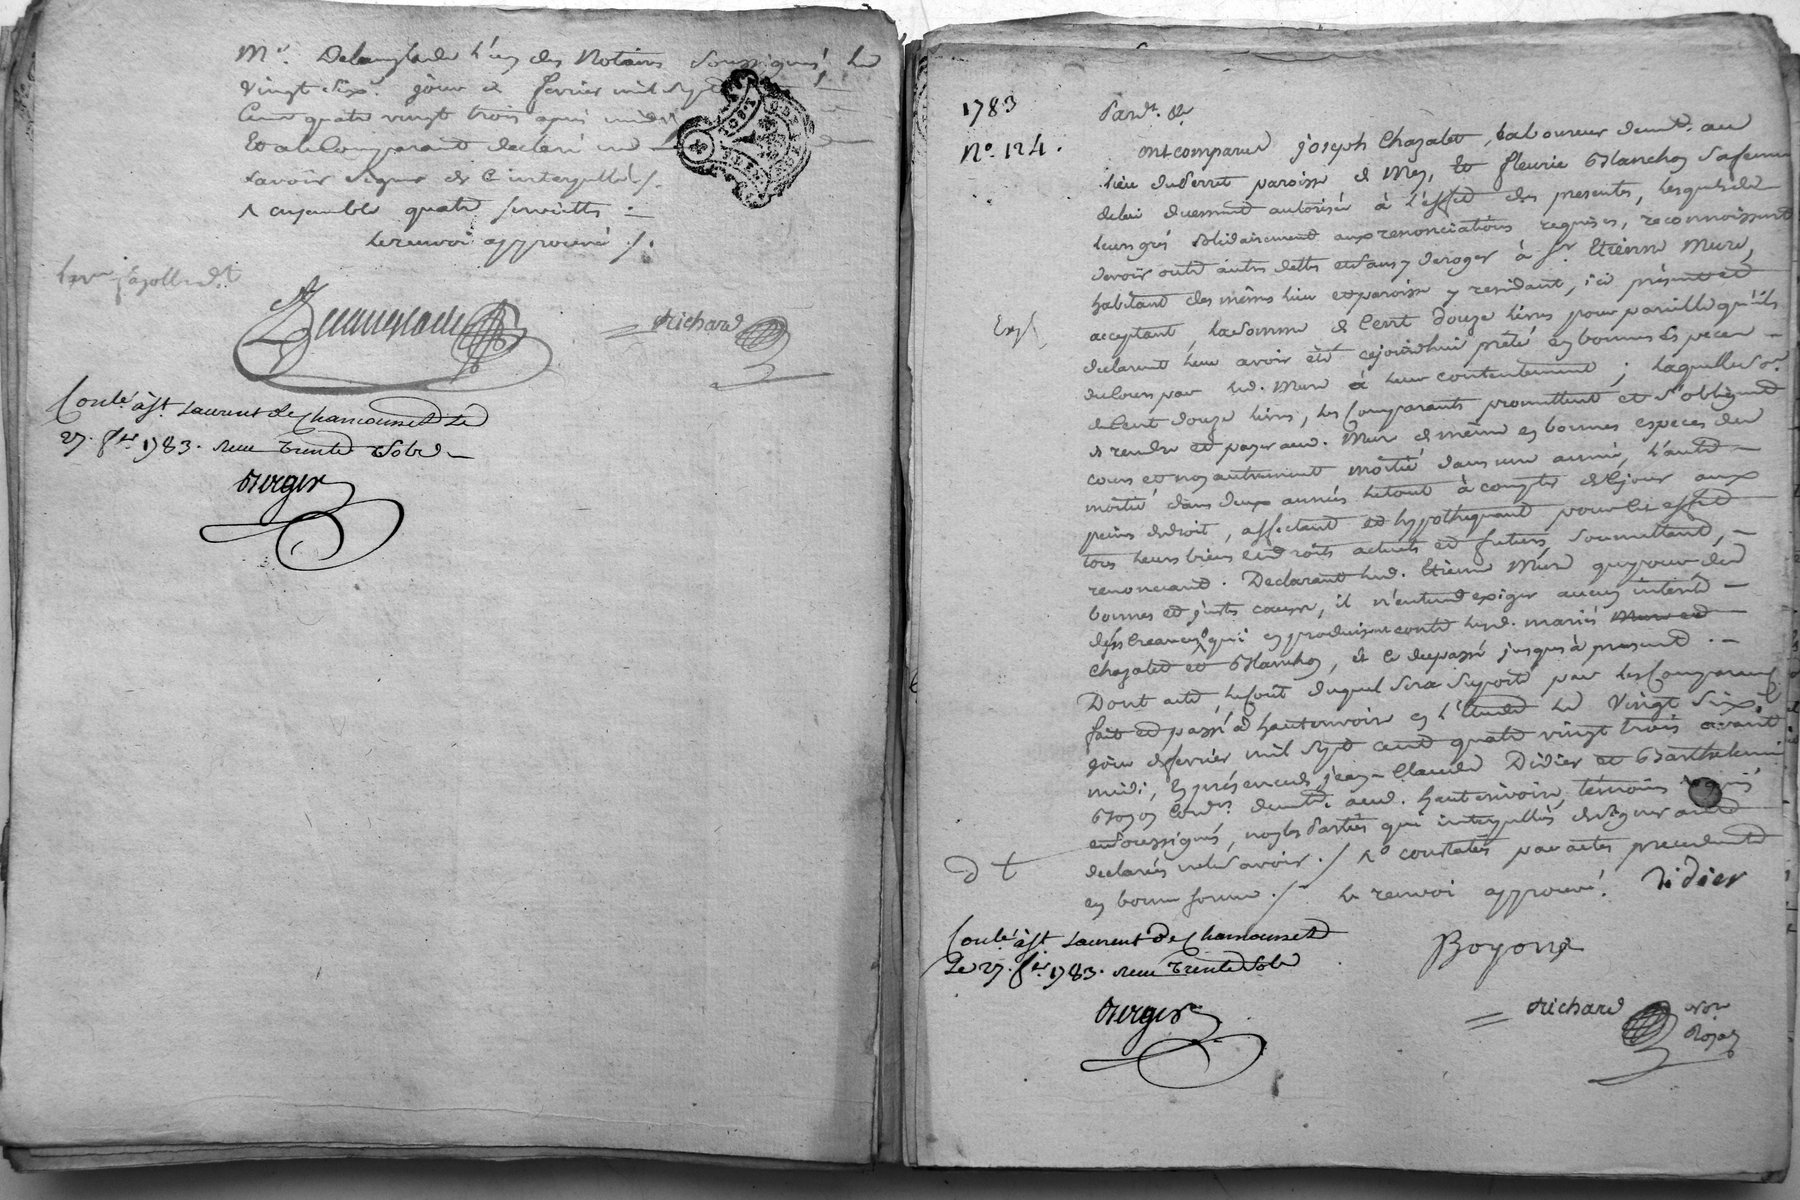 Me. Delanglade l'un des Notaires soussignés, le
vingt six.e jour de fevrier mil sept
Cent quatre vingt trois après midi
Et a le Comparant declaré ne
savoir signer de ce interpellé ./.
ensemble quatre serviettes
le renvoi approuvé ./.
Richard
Conlé. à St. Laurent de Chamousset le
27. fer. 1783. reçu trente sols
Berger
1783
No. 124.
Pard.t &
ont comparu joseph Chazalet, Laboureur demt. au
lieu du Serret paroisse de Mey, et fleurie Blanchon sa femme
de lui duement autorisée à l'effet des presentes, lesquels de
leurs grés solidairement aux renonciations requises, reconnoissent
devoir outre autres dettes et sans y deroger à Sr. Etienne Mure,
habitant des mêmes lieu et paroisse y residant, ici présent et
acceptant, la somme de Cent douze livres pour pareille qu'ils
declarent leur avoir été cejourdhui prêté en bonnes especes
du cours par led. Mure à leur contentement ; laquelle so.e
de Cent douze livres, les Comparants promettent et s'obligent
de rendre et payer aud. Mure de même en bonnes especes du
cours et non autrement moitié dans une année, l'autre
moitié dans deux années le tout à compter de ce jour aux
peines de droit, affectant et hypothequant pour cet effet
tous leurs biens et droits actuels et futurs, soumettant,
renonçant. Declarant led. Etienne Mure que pour de
bonnes et justes causes, il n'entend exiger aucun interêt
des creances qui en produisent contre lesd. mariés Mure et
Chazalet et Blanchon, et ce du passé jusques à present.
Dont acte, le coût duquel sera suporté par les Comparants
fait et passé à hauterivoire en l'Etude le vingt six.e
jour de fevrier mil sept cent quatre vingt trois avant
midi, En présence de jean-Claude Didier et Barthelemi
Boyon Cord.rs demt. aud. hauterivoire, témoins requis
et soussignés, non les Parties qui interpellés de signer ont
declarés ne le savoir ./. constatés par actes precedents
en bonne forme ./. le renvoi approuvé. Didier
Boyon
Conlé. à St. Laurent de Chamousset
Le 27. fer. 1783. reçu trente sols
Berger
Richard